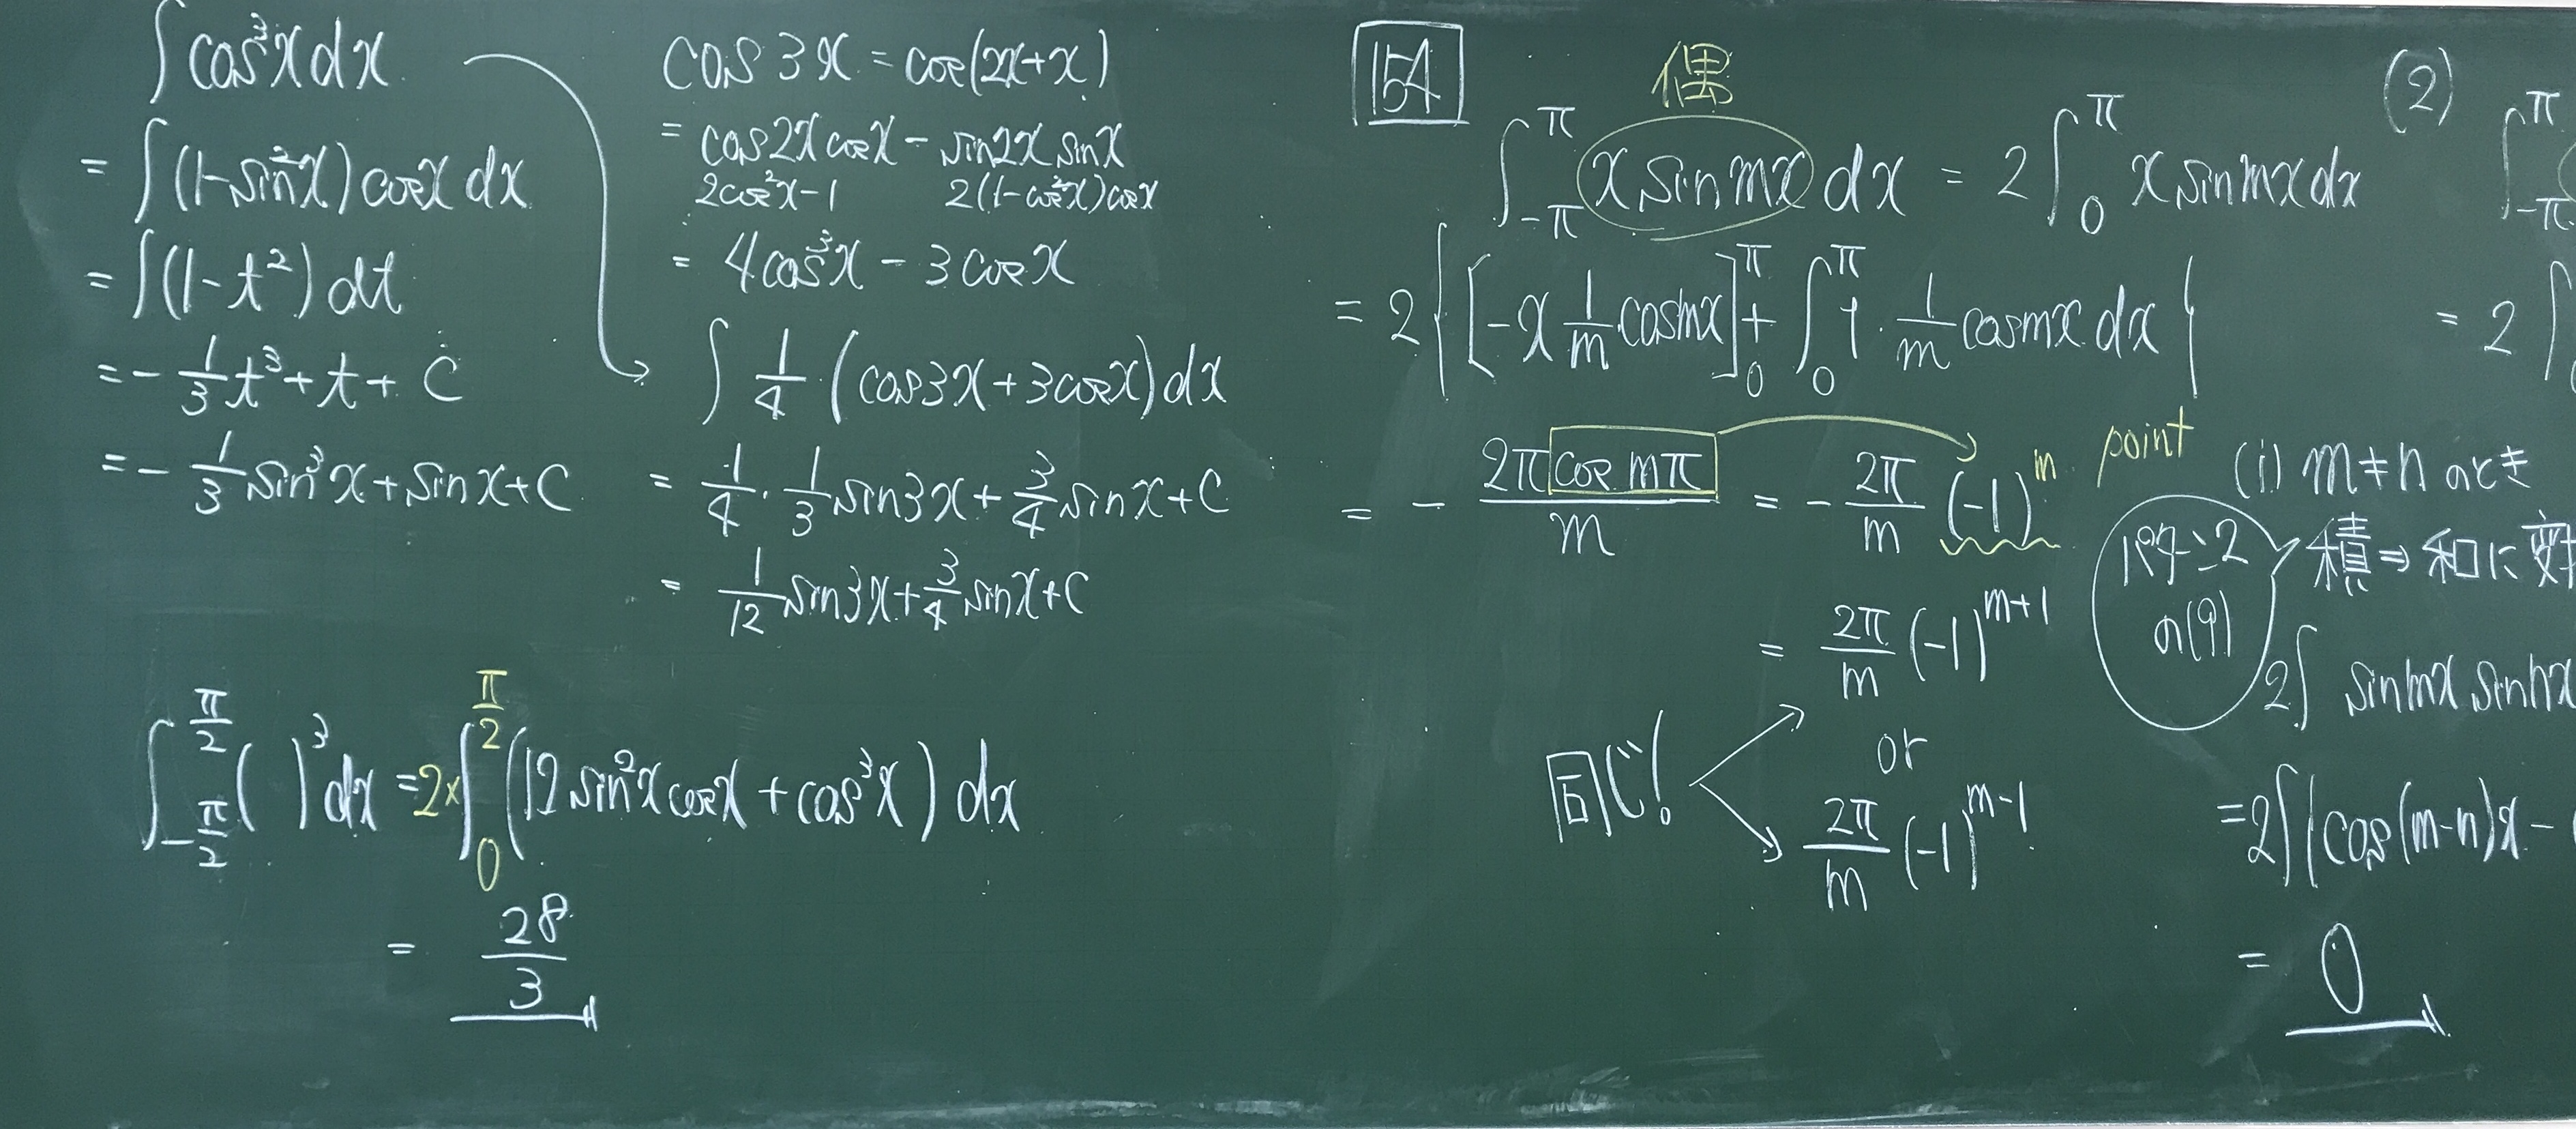 ∫cos³x dx
= ∫(1-sin²x)cosx dx
= ∫(1-t²)dt
= -1/3 t³ + t + C
= -1/3 sin³x + sinx + C
cos3x = cos(2x+x)
= cos2x cosx - sin2x sinx
2cos²x-1  2(1-cos²x)cosx
= 4cos³x - 3cosx
∫ 1/4 (cos3x+3cosx)dx
= 1/4 · 1/3 sin3x + 3/4 sinx + C
= 1/12 sin3x + 3/4 sinx + C
∫_{-π/2}^{π/2} ( )³dx = 2×∫_0^{π/2} (12sin²x cosx + cos³x) dx
= 28/3
154
偶
∫_{-π}^{π} x sinmx dx = 2∫_0^π x sinmx dx
= 2{[-x 1/m cosmx]_0^π + ∫_0^π 1· 1/m cosmx dx}
= - 2π cos mπ / m = - 2π/m (-1)^m point
= 2π/m (-1)^{m+1}
or
同じ!
2π/m (-1)^{m-1}
(2)
∫_{-π}^{π}
= 2∫
(i) m≠n のとき
積⇒和に変
パターン2
の(9)
2∫ sinmx sinnx
=2∫(cos(m-n)x -
= 0